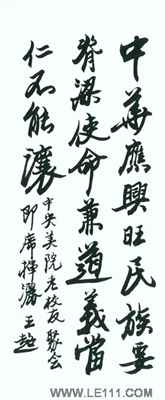 中華應興旺民族要
脊梁使命兼道義當
仁不能讓
中央美院老校友聚会
即席揮灑 王越
www.LE111.com